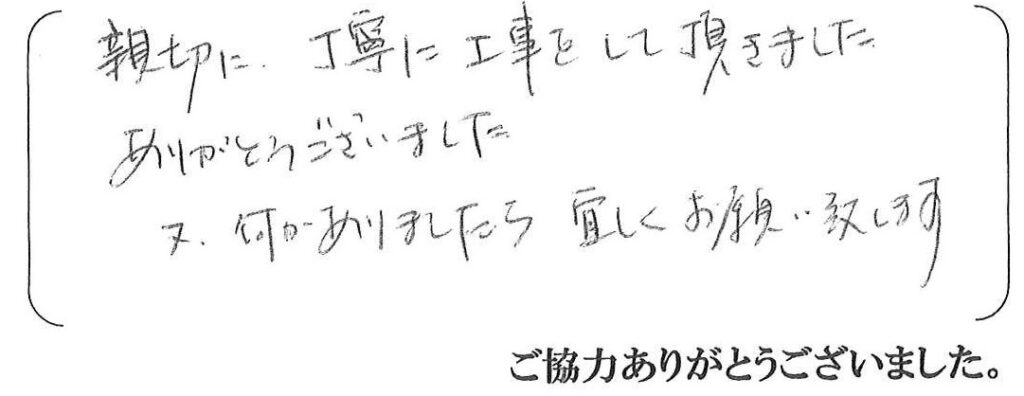 親切に、丁寧に工事をして頂きました
ありがとうございました
又、何かありましたら宜しくお願い致します
ご協力ありがとうございました。